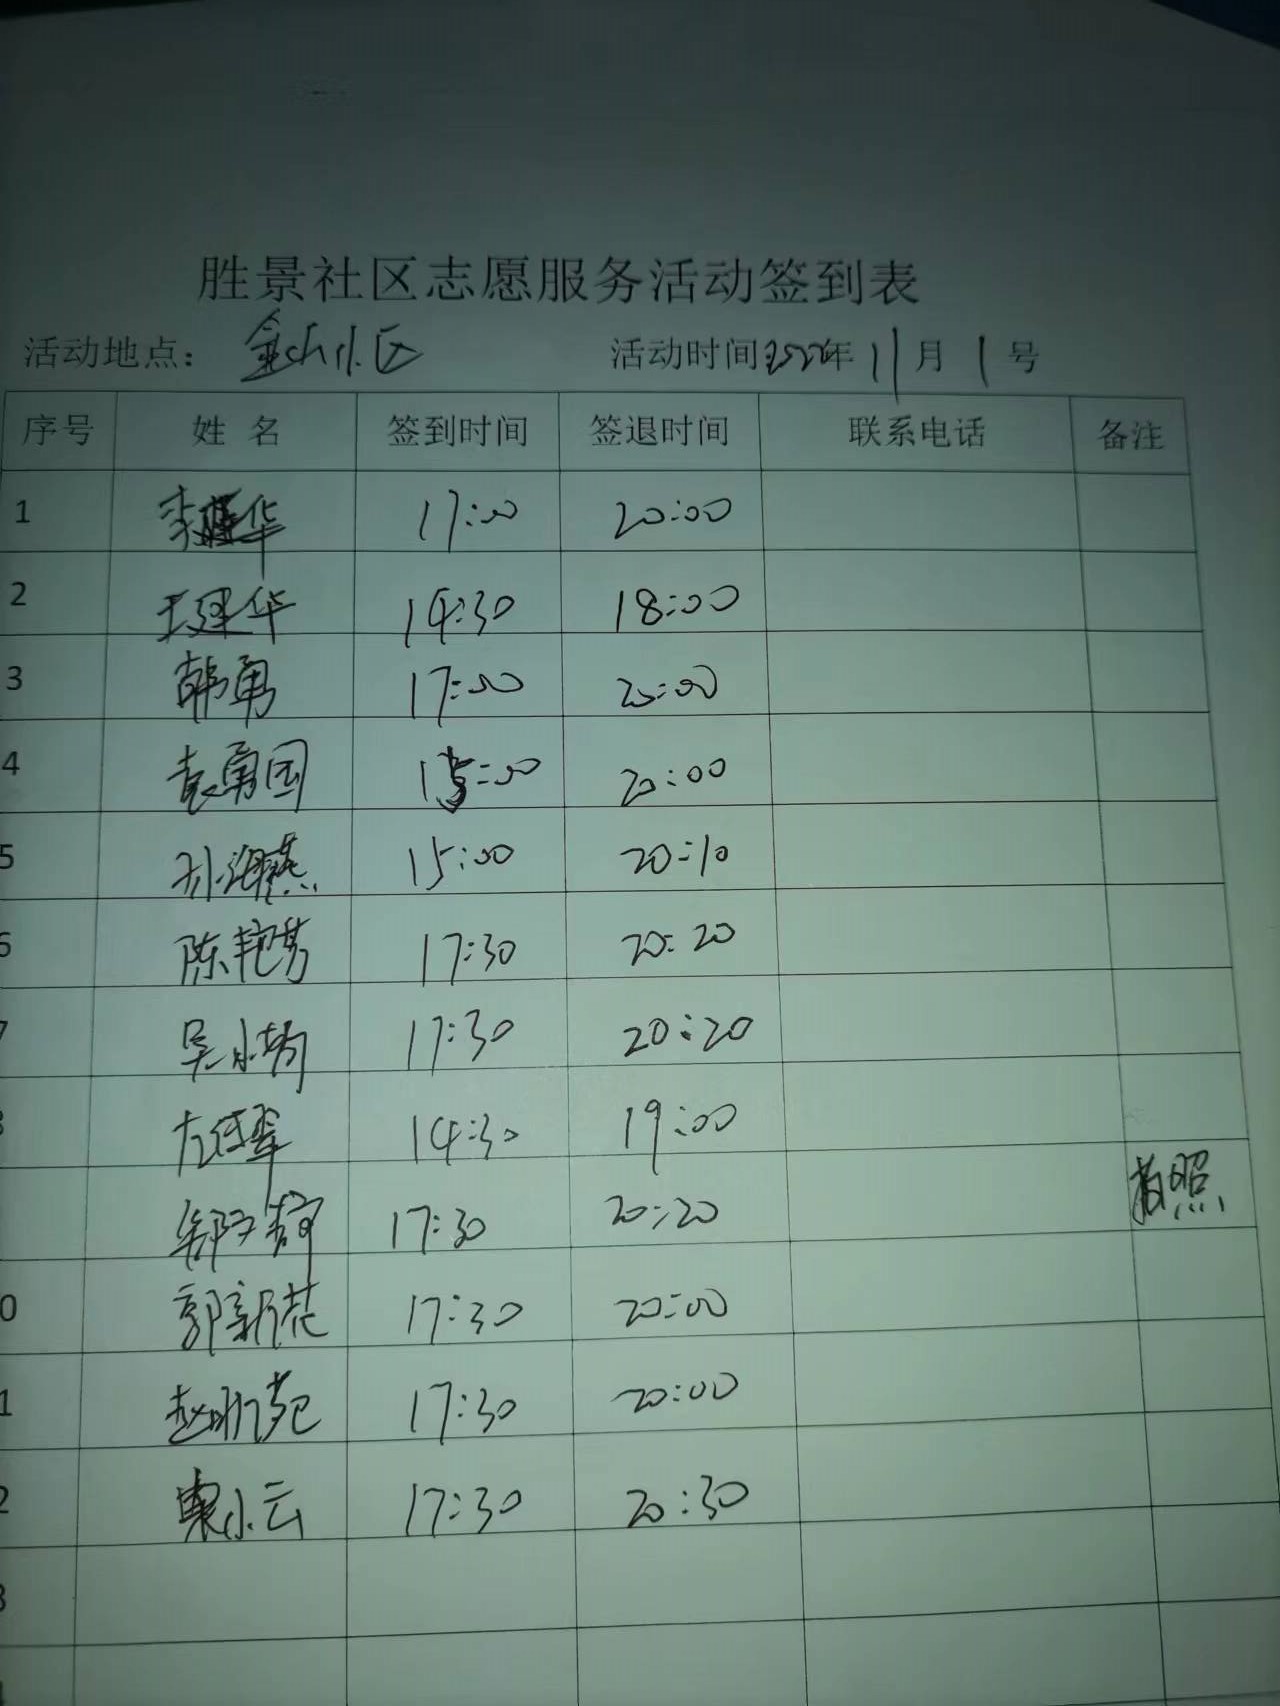 胜景社区志愿服务活动签到表
活动地点： 小区 活动时间 年 11月 1号
序号 姓名 签到时间 签退时间 联系电话 备注
1 李建华 17:00 20:00
2 王建华 14:30 18:00
3 韩勇 17:00 20:00
4 袁勇国 15:00 20:00
5 孙海燕 15:00 20:10
陈艳芳 17:30 20:20
吴小 17:30 20:20
14:30 19:00
17:30 20:20 拍照
0 郭新花 17:30 20:00
1 赵 苑 17:30 20:00
2 小云 17:30 20:30